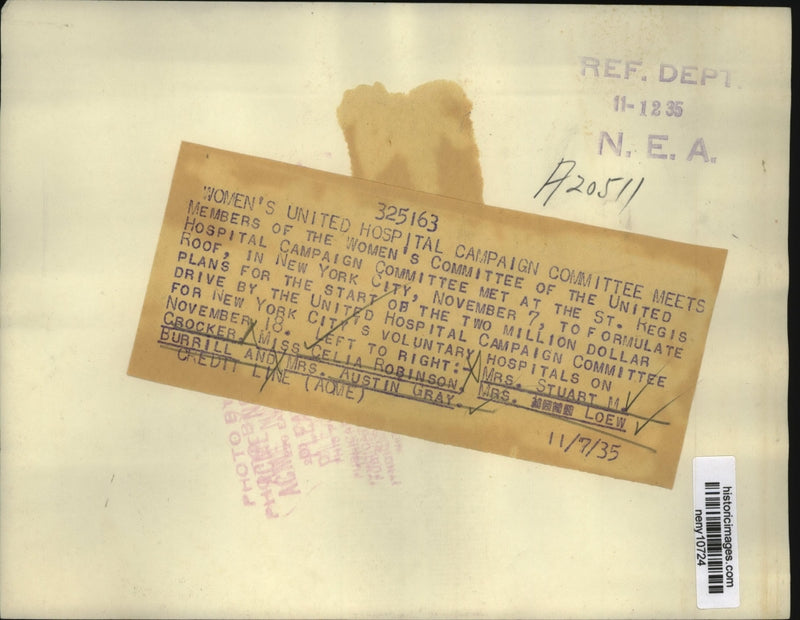 REF. DEPT.
11-12 35
N. E. A.
A20511
325163
WOMEN'S UNITED HOSPITAL CAMPAIGN COMMITTEE MEETS
MEMBERS OF THE WOMEN'S COMMITTEE OF THE UNITED
HOSPITAL CAMPAIGN COMMITTEE MET AT THE ST. REGIS
ROOF, IN NEW YORK CITY, NOVEMBER 7, TO FORMULATE
PLANS FOR THE START OF THE TWO MILLION DOLLAR
DRIVE BY THE UNITED HOSPITAL CAMPAIGN COMMITTEE
FOR NEW YORK CITY'S VOLUNTARY HOSPITALS ON
NOVEMBER 18. LEFT TO RIGHT: MRS. STUART M.
CROCKER, MISS CELIA ROBINSON, MRS. LOEW
BURRILL AND MRS. AUSTIN GRAY.
CREDIT LINE (ACME)
11/7/35
PHOTO BY
ACME
historicimages.com
neny10724